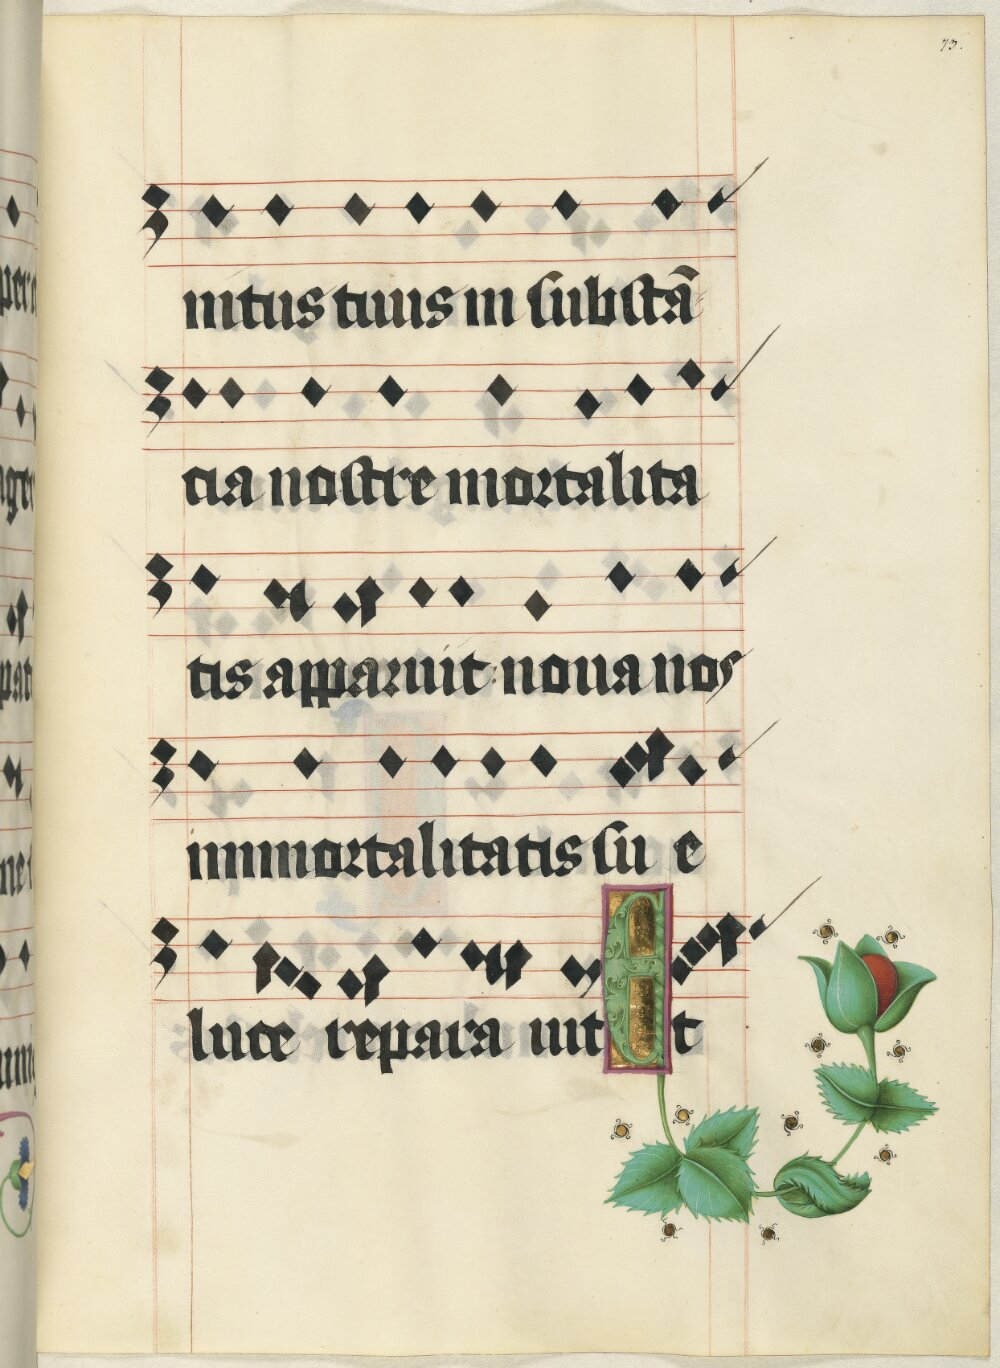 73.
nitus tuus in substā
cia nostre mortalita
tis apparuit nova nos
immortalitatis su e
luce repara uit Et